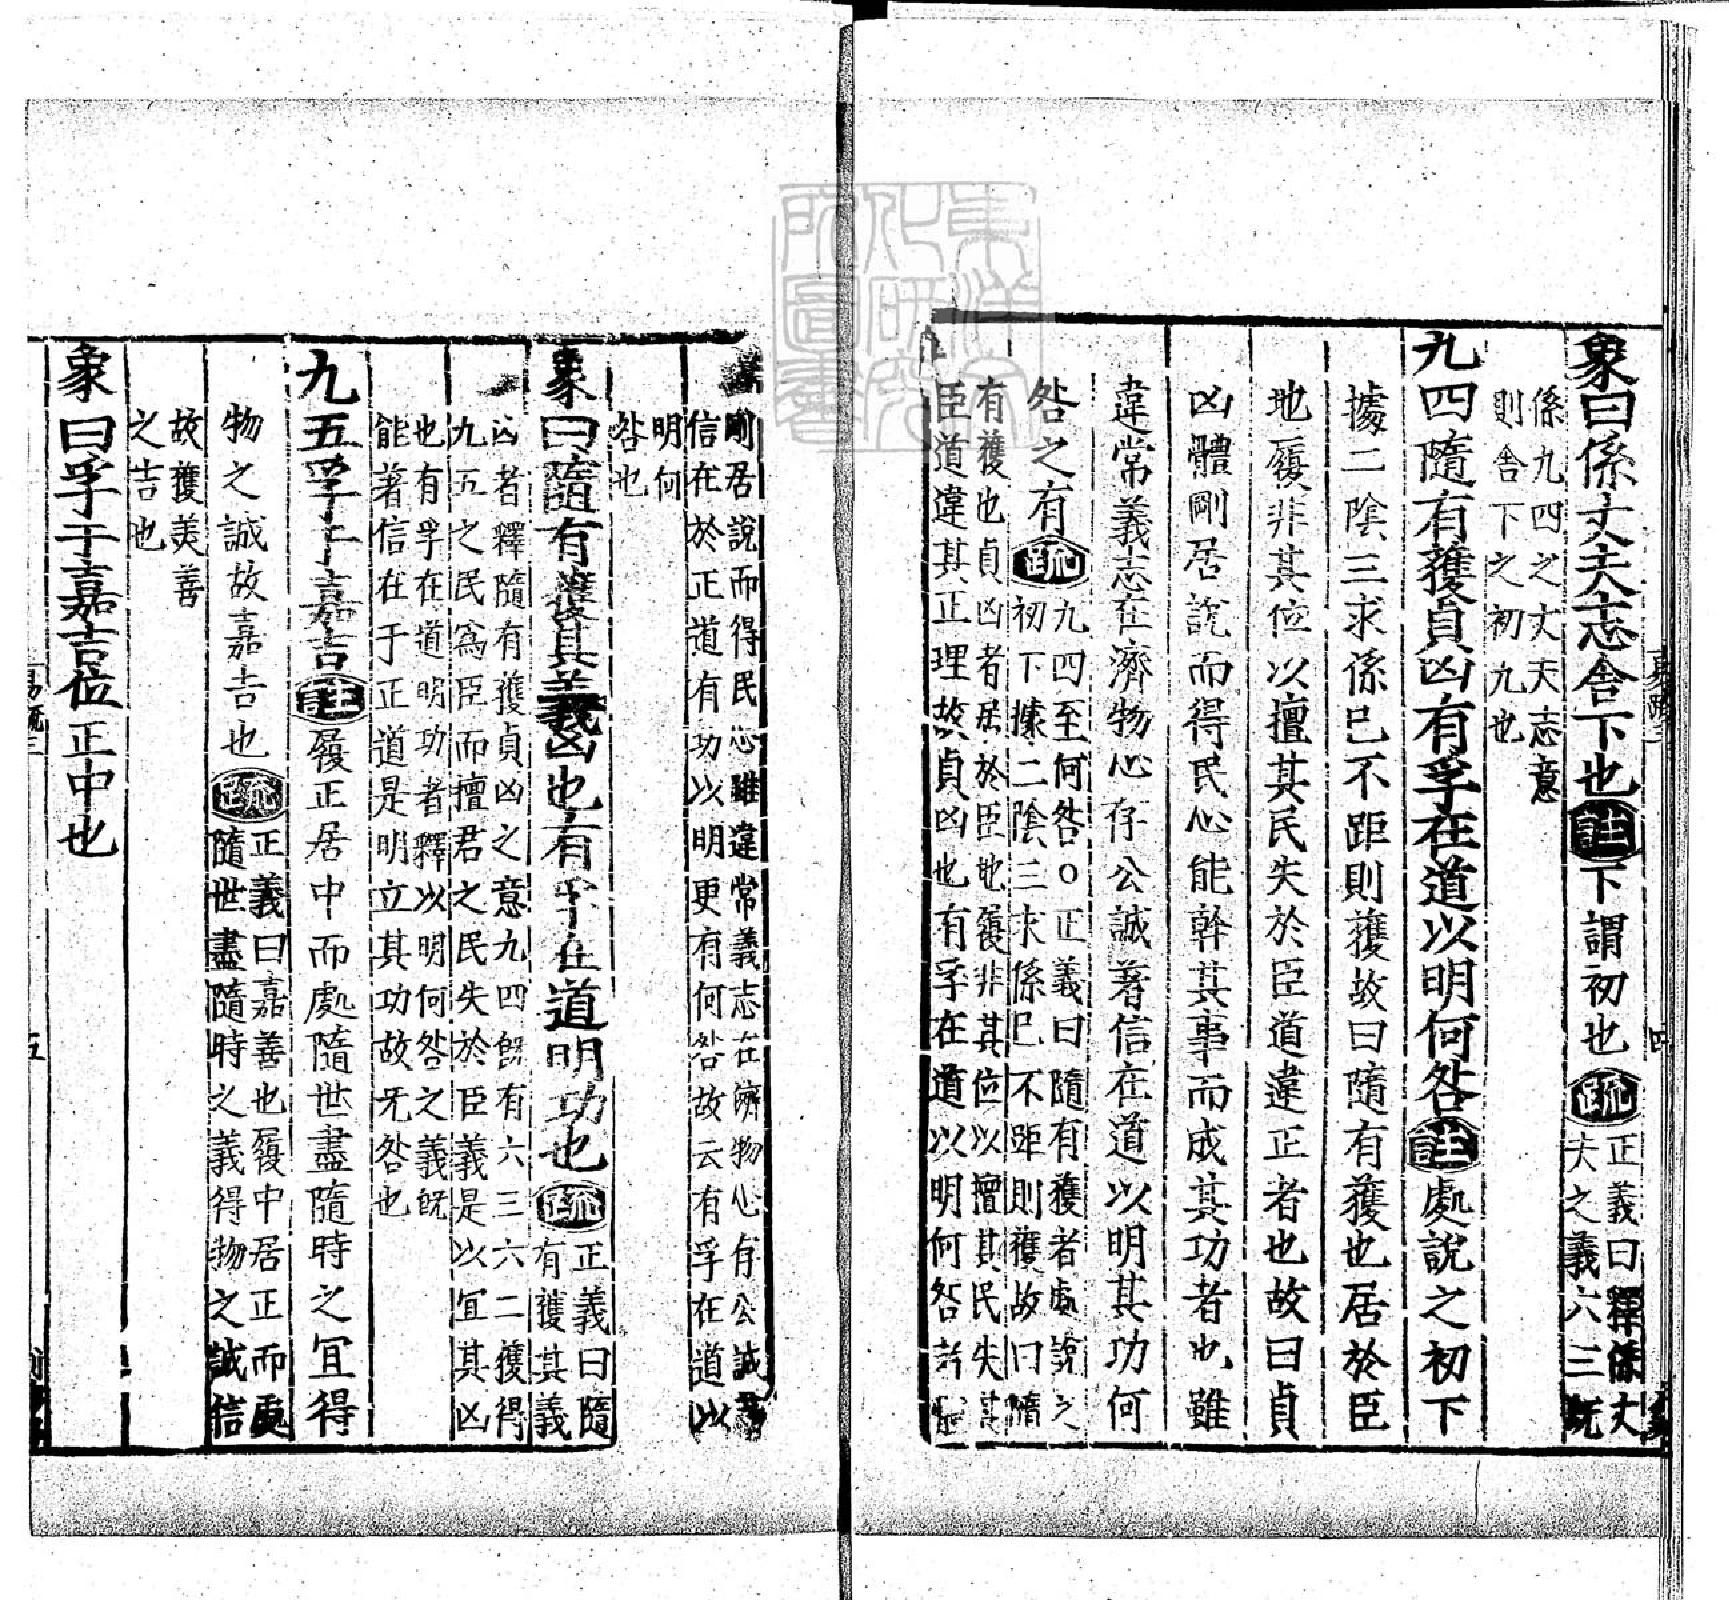 象曰係丈夫志舍下也註下謂初也疏正義曰釋係丈
夫之義六三既
係九四之丈夫志意
則舍下之初九也
九四隨有獲貞凶有孚在道以明何咎註處說之初下
據二陰三求係已不距則獲故曰隨有獲也居於臣
地履非其位以擅其民失於臣道違正者也故曰貞
凶體剛居說而得民心能幹其事而成其功者也雖
違常義志在濟物心存公誠著信在道以明其功何
咎之有疏九四至何咎○正義曰隨有獲者處說之
初下據二陰三求係已不距則獲故曰隨
有獲也貞凶者居於臣地履非其位以擅其民失其
臣道違其正理故貞凶也有孚在道以明何咎者
剛居說而得民心雖違常義志在濟物心存公誠
信在於正道有功以明更有何咎故云有孚在道以
明何
咎也
象曰隨有獲其義凶也有孚在道明功也疏正義曰隨
有獲其義
凶者釋隨有獲貞凶之意九四既有六三六二獲得
九五之民為臣而擅君之民失於臣義是以宜其凶
也有孚在道明功者釋以明何咎之義既
能著信在于正道是明立其功故无咎也
九五孚于嘉吉註履正居中而處隨世盡隨時之宜得
物之誠故嘉吉也疏正義曰嘉善也履中居正而處
隨世盡隨時之義得物之誠信
故獲美善
之吉也
象曰孚于嘉吉位正中也
易疏三
五